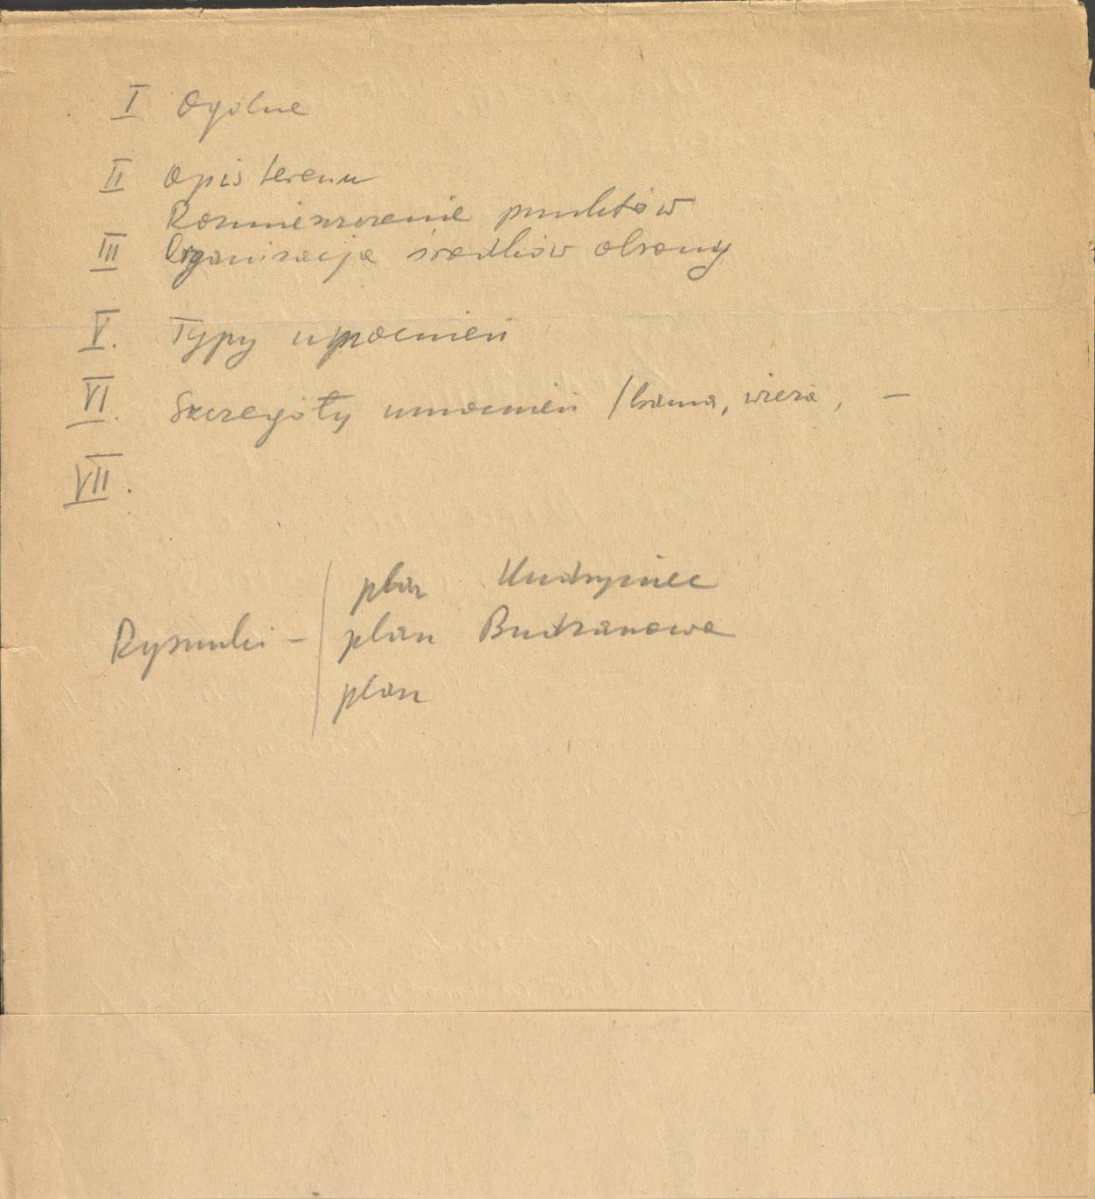 I Ogólne
II Opis terenu
Rozmieszczenie punktów
III Organizacja środków obrony
V. Typy umocnień
VI. Szczegóły umocnień / brama, wieża, —
VII.
plan Kudryniec
Rysunki — plan Budzanowa
plan